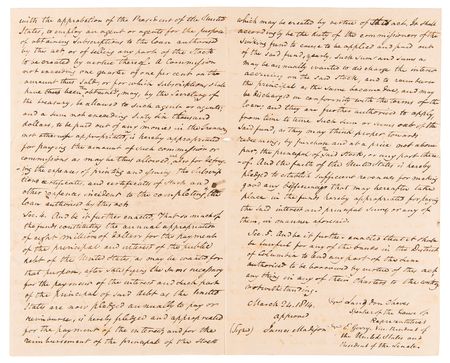 with the approbation of the President of the United
States, to employ an agent or agents for the purpose
of obtaining subscriptions to the loan authorized
by this act or of selling any part of the Stock
to be created by virtue thereof. A commission
not exceeding one quarter of one per cent on the
amount thus sold or for which subscriptions shall
have thus been obtained, may, by the Secretary of
the treasury, be allowed to such agent or agents;
and a sum not exceeding sixty six thousand
dollars, to be paid out of any monies in the treasury
not otherwise appropriated, is hereby appropriated
for paying the amount of such commission or
commissions as may be thus allowed, also for defray-
ing the expense of printing and issuing the subscrip
tions certificates, and certificates of Stock and
other expenses incident to the completing the
loan authorized by this act.
Sec. 4. And be it further enacted, That so much of
the funds constituting the annual appropriation
of eight millions of dollars for the payment
of the principal and interest of the public
debt of the United States, as may be wanted for
that purpose, after satisfying the sums necessary
for the payment of the interest and such part
of the principal of said debt as the United
States are now pledged annually to pay or
reimburse, is hereby pledged and appropriated
for the payment of the interest, and for the
reimbursement of the principal of the Stock
which may be created by virtue of this act. It shall
accordingly be the duty of the commissioners of the
sinking fund to cause to be applied and paid out
of the said fund, yearly, such sum and sums as
may be annually wanted to discharge the interest
accruing on the said Stock, and to reimburse
the principal as the same become due, and may
be discharged in conformity with the terms of the
loan; and they are further authorized to apply
from time to time such sum or sums out of the
said fund, as they may think proper towards
redeeming, by purchase and at a price not above
par, the principal of said Stock, or any part there-
of. And the faith of the United States, is hereby
pledged to establish sufficient revenues for making
good any deficiency that may hereafter take
place in the funds hereby appropriated for paying
the said interest and principal sums, or any of
them, in manner aforesaid.
Sec. 5. And be it further enacted That it shall
be lawful for any of the banks in the District
of Columbia to lend any part of the sum
authorized to be borrowed by virtue of this act
any thing in any of their charters to the contrary
notwithstanding.
March 24. 1814.
approved
(Signed) James Madison
Langdon Cheves
Speaker of the House of
Representatives
E. Gerry. Vice President of
the United States and
President of the Senate.